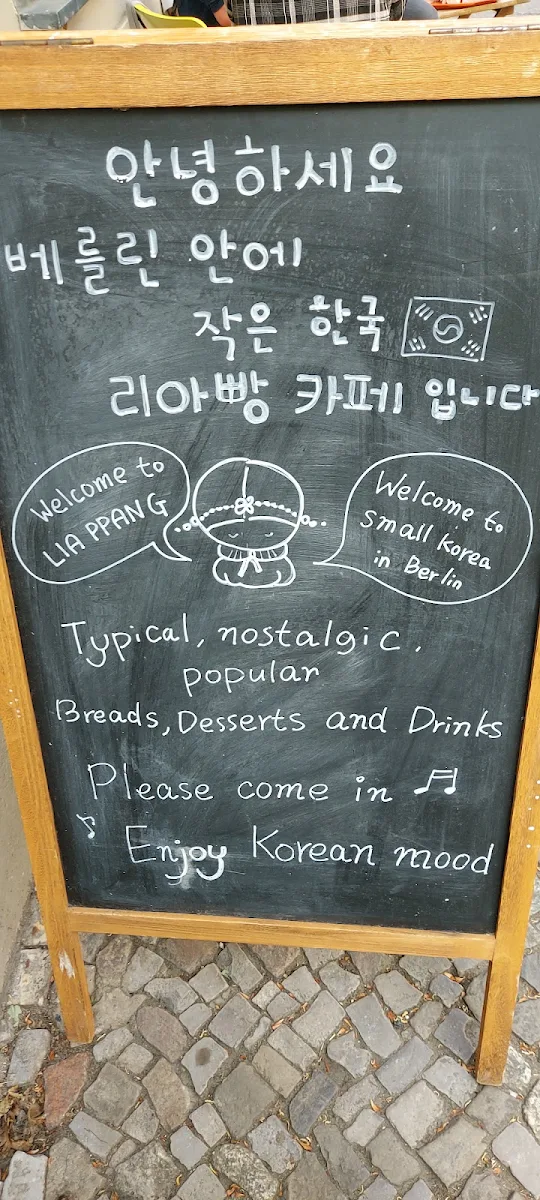 안녕하세요
베를린 안에
작은 한국
리아빵 카페 입니다
Welcome to
LIA PPANG
Welcome to
small korea
in Berlin
Typical, nostalgic,
popular
Breads, Desserts and Drinks
Please come in
Enjoy Korean mood